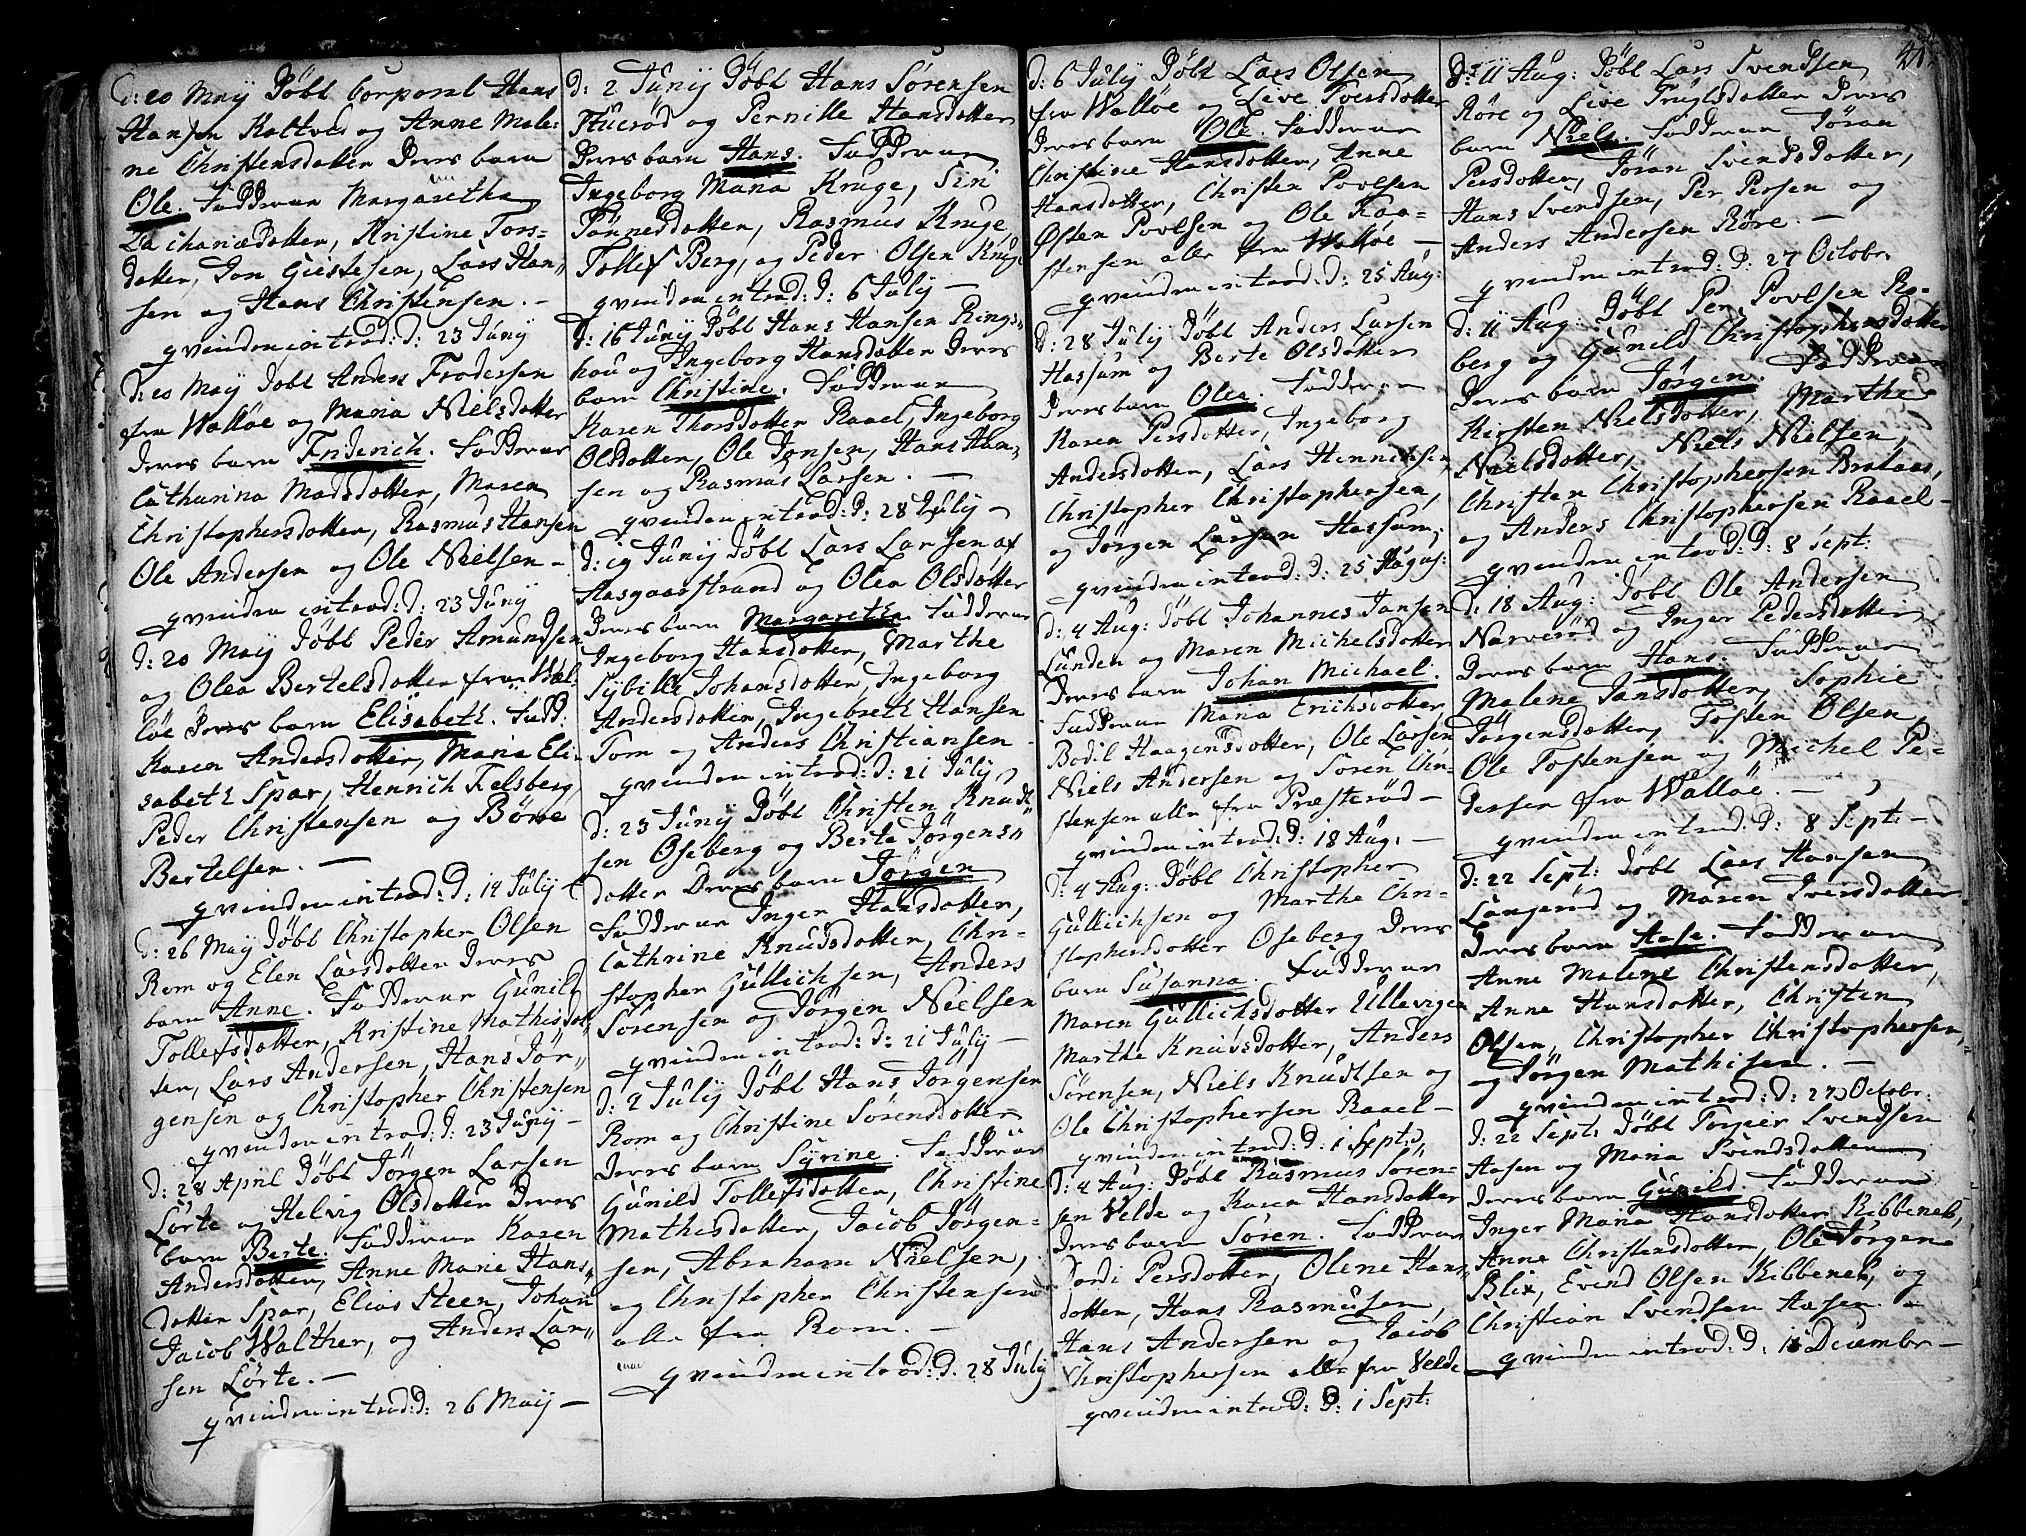 d: 20 Maÿ Döbt Corporal Hans
Hansen Kaltved og Anne Male-
ne Christensdotter deres barn
Ole. Fadderne Margaretha
Zachariædotter, Kristine Tors-
dotter, Jon Giestesen, Lars Han-
sen og Hans Christensen. -
qvinden introd: d: 23 Junÿ
d: 20 Maÿ Döbt Anders Frodessen
fra Walløe og Maria Nielsdotter
deres barn Friderich. Fadderne
Catharina Madsdotter, Maren
Christophersdotter, Rasmus Hansen
Ole Andersen og Ole Nielsen -
qvinden introd: d: 23 Junÿ
d: 20 Maÿ Döbt Peder Amundsen
og Olea Bertelsdotter fra Wal-
löe deres barn Elisabeth. Fadd:
Karen Andersdotter, Maria Eli-
sabeth Spar, Henrich Felsberg,
Peder Christensen og Börre
Bertelsen. -
qvinden introd: d: 14 Julÿ
d: 26 Maÿ Döbt Christopher Olsen
Rom og Elen Larsdotter deres
barn Anne. Fadderne Gunild
Tollefsdotter, Kristine Mathisdot-
ter, Lars Andersen, Hans Jör-
gensen og Christopher Christensen
qvinden introd: d: 23 Junÿ -
d: 28 April Döbt Jörgen Larsen
Lörte og Helvig Olsdotter deres
barn Berte. Fadderne Karen
Andersdotter, Anne Marie Hans-
dotter Spar, Elias Steen, Johan
Jacob Walther, og Anders Lar-
sen Lörte. -
qvinden introd: d: 26 Maÿ -
d: 2 Junÿ Döbt Hans Sörensen
Huesrød og Pernille Hansdotter
deres barn Hans. Fadderne
Ingeborg Maria Kruge, Siri
Tönnesdotter, Rasmus Kruge
Tollef Berg, og Peder Olsen Krug-
qvinden introd: d: 6 Julÿ -
d: 16 Junÿ Döbt Hans Hansen Rings-
hou og Ingeborg Hansdotter deres
barn Christine. Fadderne
Karen Thorsdotter Raael, Ingeborg
Olsdotter, Ole Jonsen, Hans Han-
sen og Rasmus Larsen. -
qvinden introd: d: 28 Julÿ -
d: 19 Junÿ Döbt Lars Larsen af
Aasgaarstrand og Olea Olsdotter
deres barn Margarethe Fadderne
Ingeborg Hansdotter, Marthe
Sÿbille Johansdotter, Ingeborg
Andersdotter, Ingebreth Hansen
Tom og Anders Christiansen -
qvinden introd: d: 21 Julÿ
d: 23 Junÿ Döbt Christen Knud-
sen Oseberg og Berte Jörgens-
dotter deres barn Jörgen
Fadderne Inger Hansdotter,
Cathrine Knudsdotter, Chri-
stopher Gullichsen, Anders
Sörensen og Jörgen Nielsen
qvinden introd: d: 21 Julÿ -
d: 2 Julÿ Döbt Hans Jörgensen
Rom og Christine Sörensdotter
deres barn Sÿrine. Fadderne
Gunild Tollefsdotter, Christine
Mathisdotter, Jacob Jörgen-
sen, Abraham Nielsen,
og Christopher Christensen
alle fra Rom. -
qvinden introd: d: 28 Julÿ
d: 6 Julÿ Döbt Lars Olsen
fra Walløe og Live Iversdotter
deres barn Ole. Fadderne
Christine Hansdotter, Anne
Hansdotter, Christen Povlsen
Østen Povlsen og Ole Too-
stensen alle fra Walløe -
qvinden introd: d: 25 Aug:
d: 28 Julÿ Döbt Anders Larsen
Hassum og Berte Olsdotter
deres barn Olea. Fadderne
Karen Persdotter, Ingeborg
Andersdotter, Lars Henrichsen,
Christopher Christophersen,
og Jörgen Larsen Hassum,
qvinden introd: d: 25 August:
d: 4 Aug: Döbt Johannes Jansen
Lunden og Maren Michelsdotter
deres barn Johan Michael.
Fadderne Maria Erichsdotter
Bodil Haagensdotter, Ole Larsen
Niels Andersen og Soren Chri-
stensen alle fra Præsterød -
qvinden introd: d: 18 Aug: -
d: 4 Aug: Döbt Christopher
Gullichsen og Marthe Chri-
stophersdotter Oseberg deres
barn Susanna. Fadderne
Maren Gullichsdotter Ullevigen
Marthe Knudsdotter, Anders
Sörensen, Niels Knudtsen og
Ole Christophersen Raael -
qvinden introd: d: 1 Sept:
d: 4 Aug: Döbt Rasmus Sören-
sen Velde og Karen Hansdotter
deres barn Sören. Fadderne
Jordi Persdotter, Olene Hans-
dotter, Hans Rasmusen,
Hans Andersen og Jacob
Christophersen alle fra Velde
qvinden introd: d: 1 Sept:
41.
d: 11 Aug: Döbt Lars Svendsen
Röre og Live Trulsdotter deres
barn Niels. Fadderne Jöran
Persdotter, Jöran Svendsdotter,
Hans Svendsen, Per Persen og
Anders Andersen Röre. -
qvinden introd: d: 27 Octobr:
d: 11 Aug: Döbt Per Povlsen Ro-
berg og Gunild Christophersdotter
deres barn Jörgen. Fadderne
Kirsten Nielsdotter, Marthe
Nielsdotter, Niels Nielsen,
Christen Christophersen Brataas,
og Anders Christophersen Raael -
qvinden introd: d: 8 Sept:
d: 18 Aug: Döbt Ole Andersen
Narverød og Inger Pedersdotter
deres barn Hans. Fadderne
Malene Jansdotter, Sophie
Jörgensdotter, Tosten Olsen,
Ole Tostensen og Michel Pe-
dersen fra Walløe. -
qvinden introd: d: 8 Sept: -
d: 22 Sept: Döbt Lars Hansen
Langerød og Maren Iversdotter
deres barn Aase. Fadderne
Anne Malene Christensdotter,
Anne Hansdotter, Christen
Olsen, Christopher Christophersen,
og Jörgen Mathisen. -
qvinden introd: d: 27 Octobr:
d: 22 Sept: Döbt Torger Svendsen
Aasen og Maria Svendsdotter
deres barn Gunild. Fadderne
Inger Maria Hansdotter Kibbenes,
Anne Christensdotter, Ole Jörgen
Blix, Evend Olsen Kibbenes, og
Christian Svendsen Aasen -
qvinden introd: d. 11 Decembr -